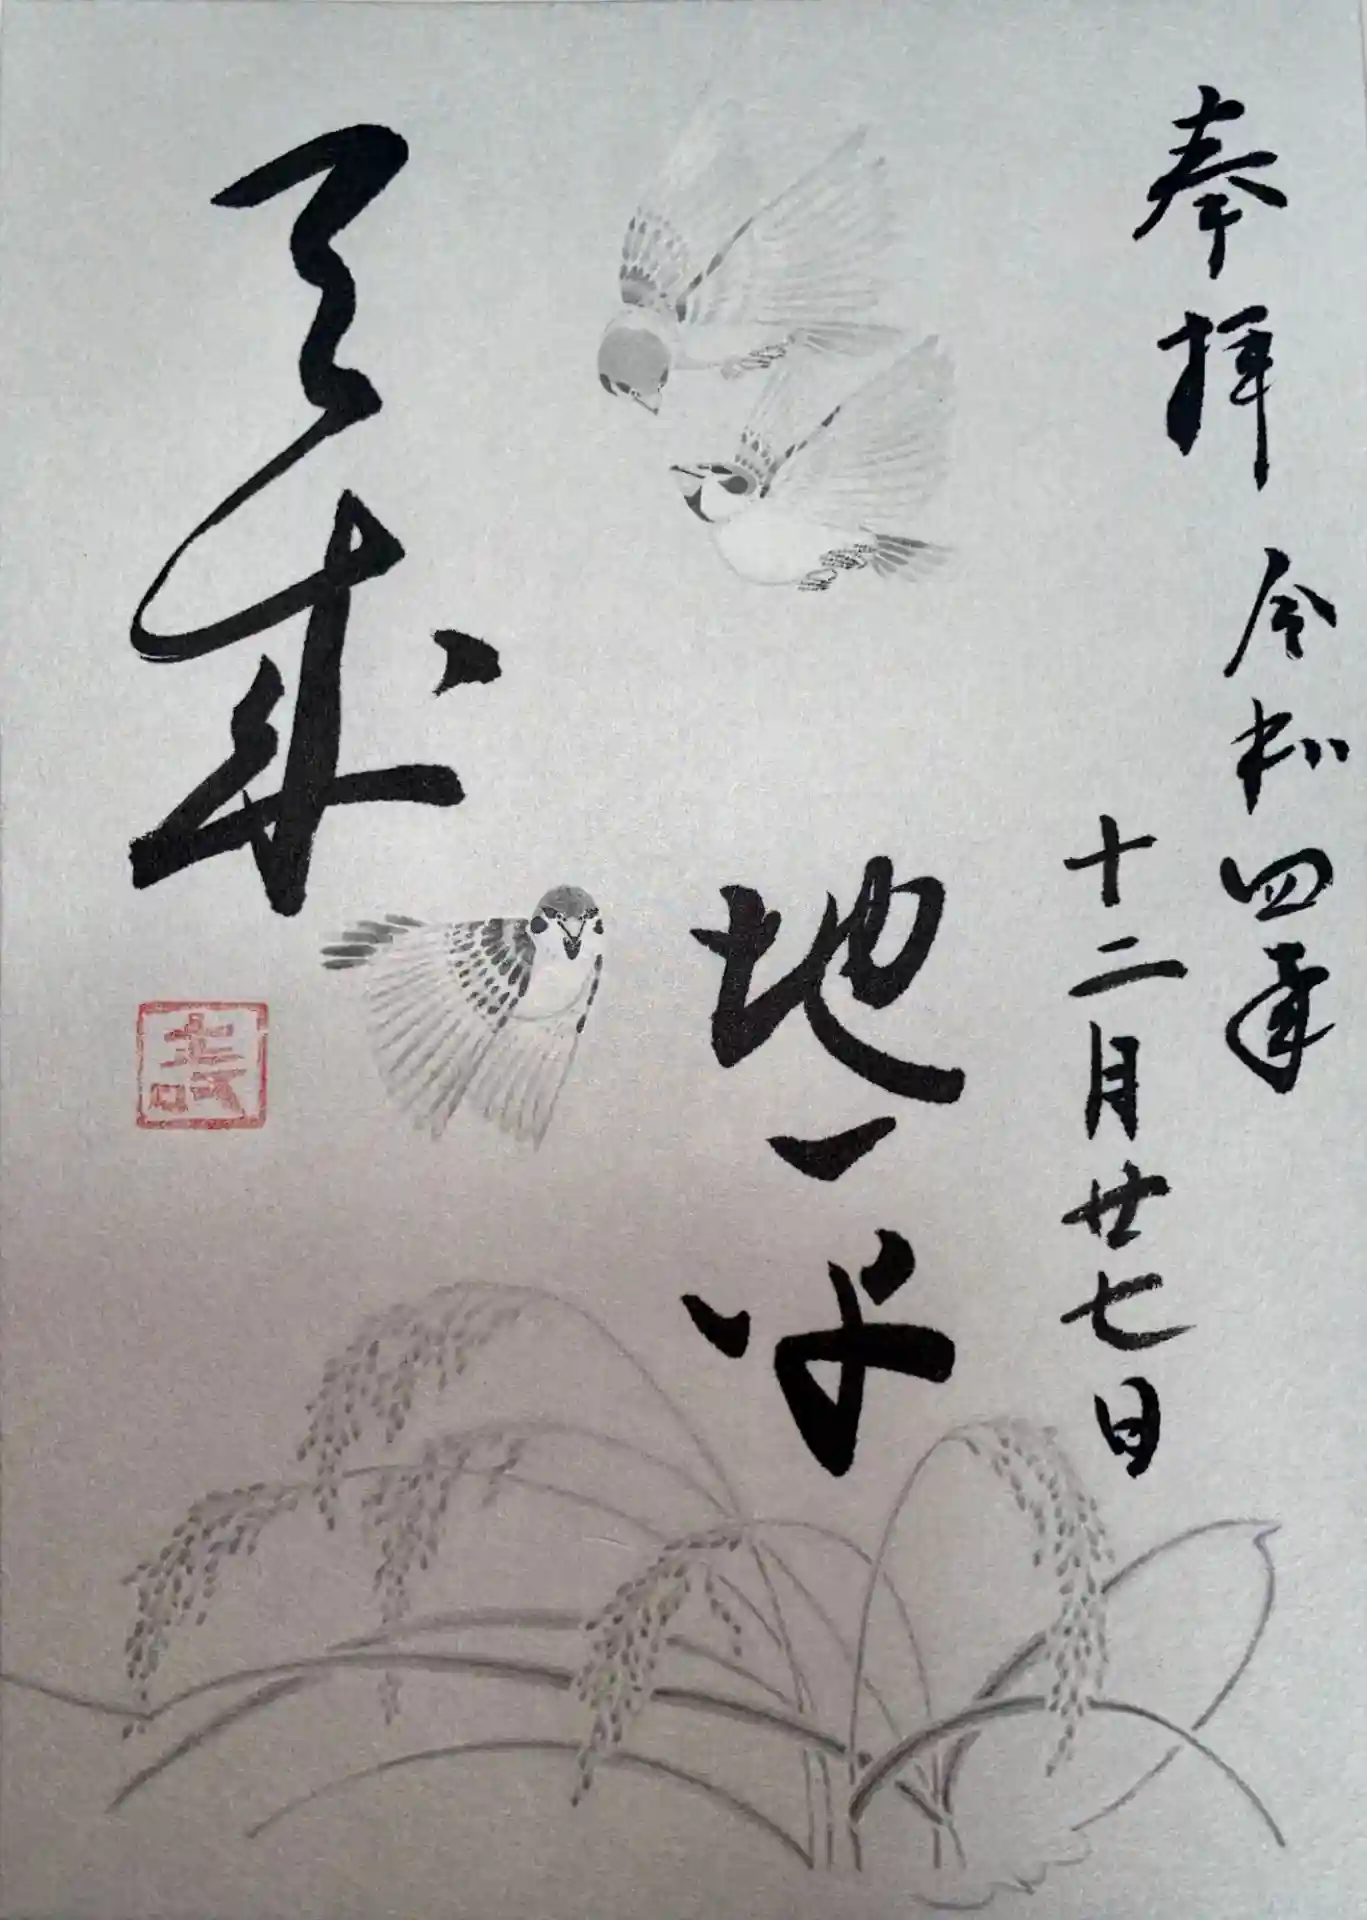 奉拝 令和四年
十二月廿七日
地平
天成